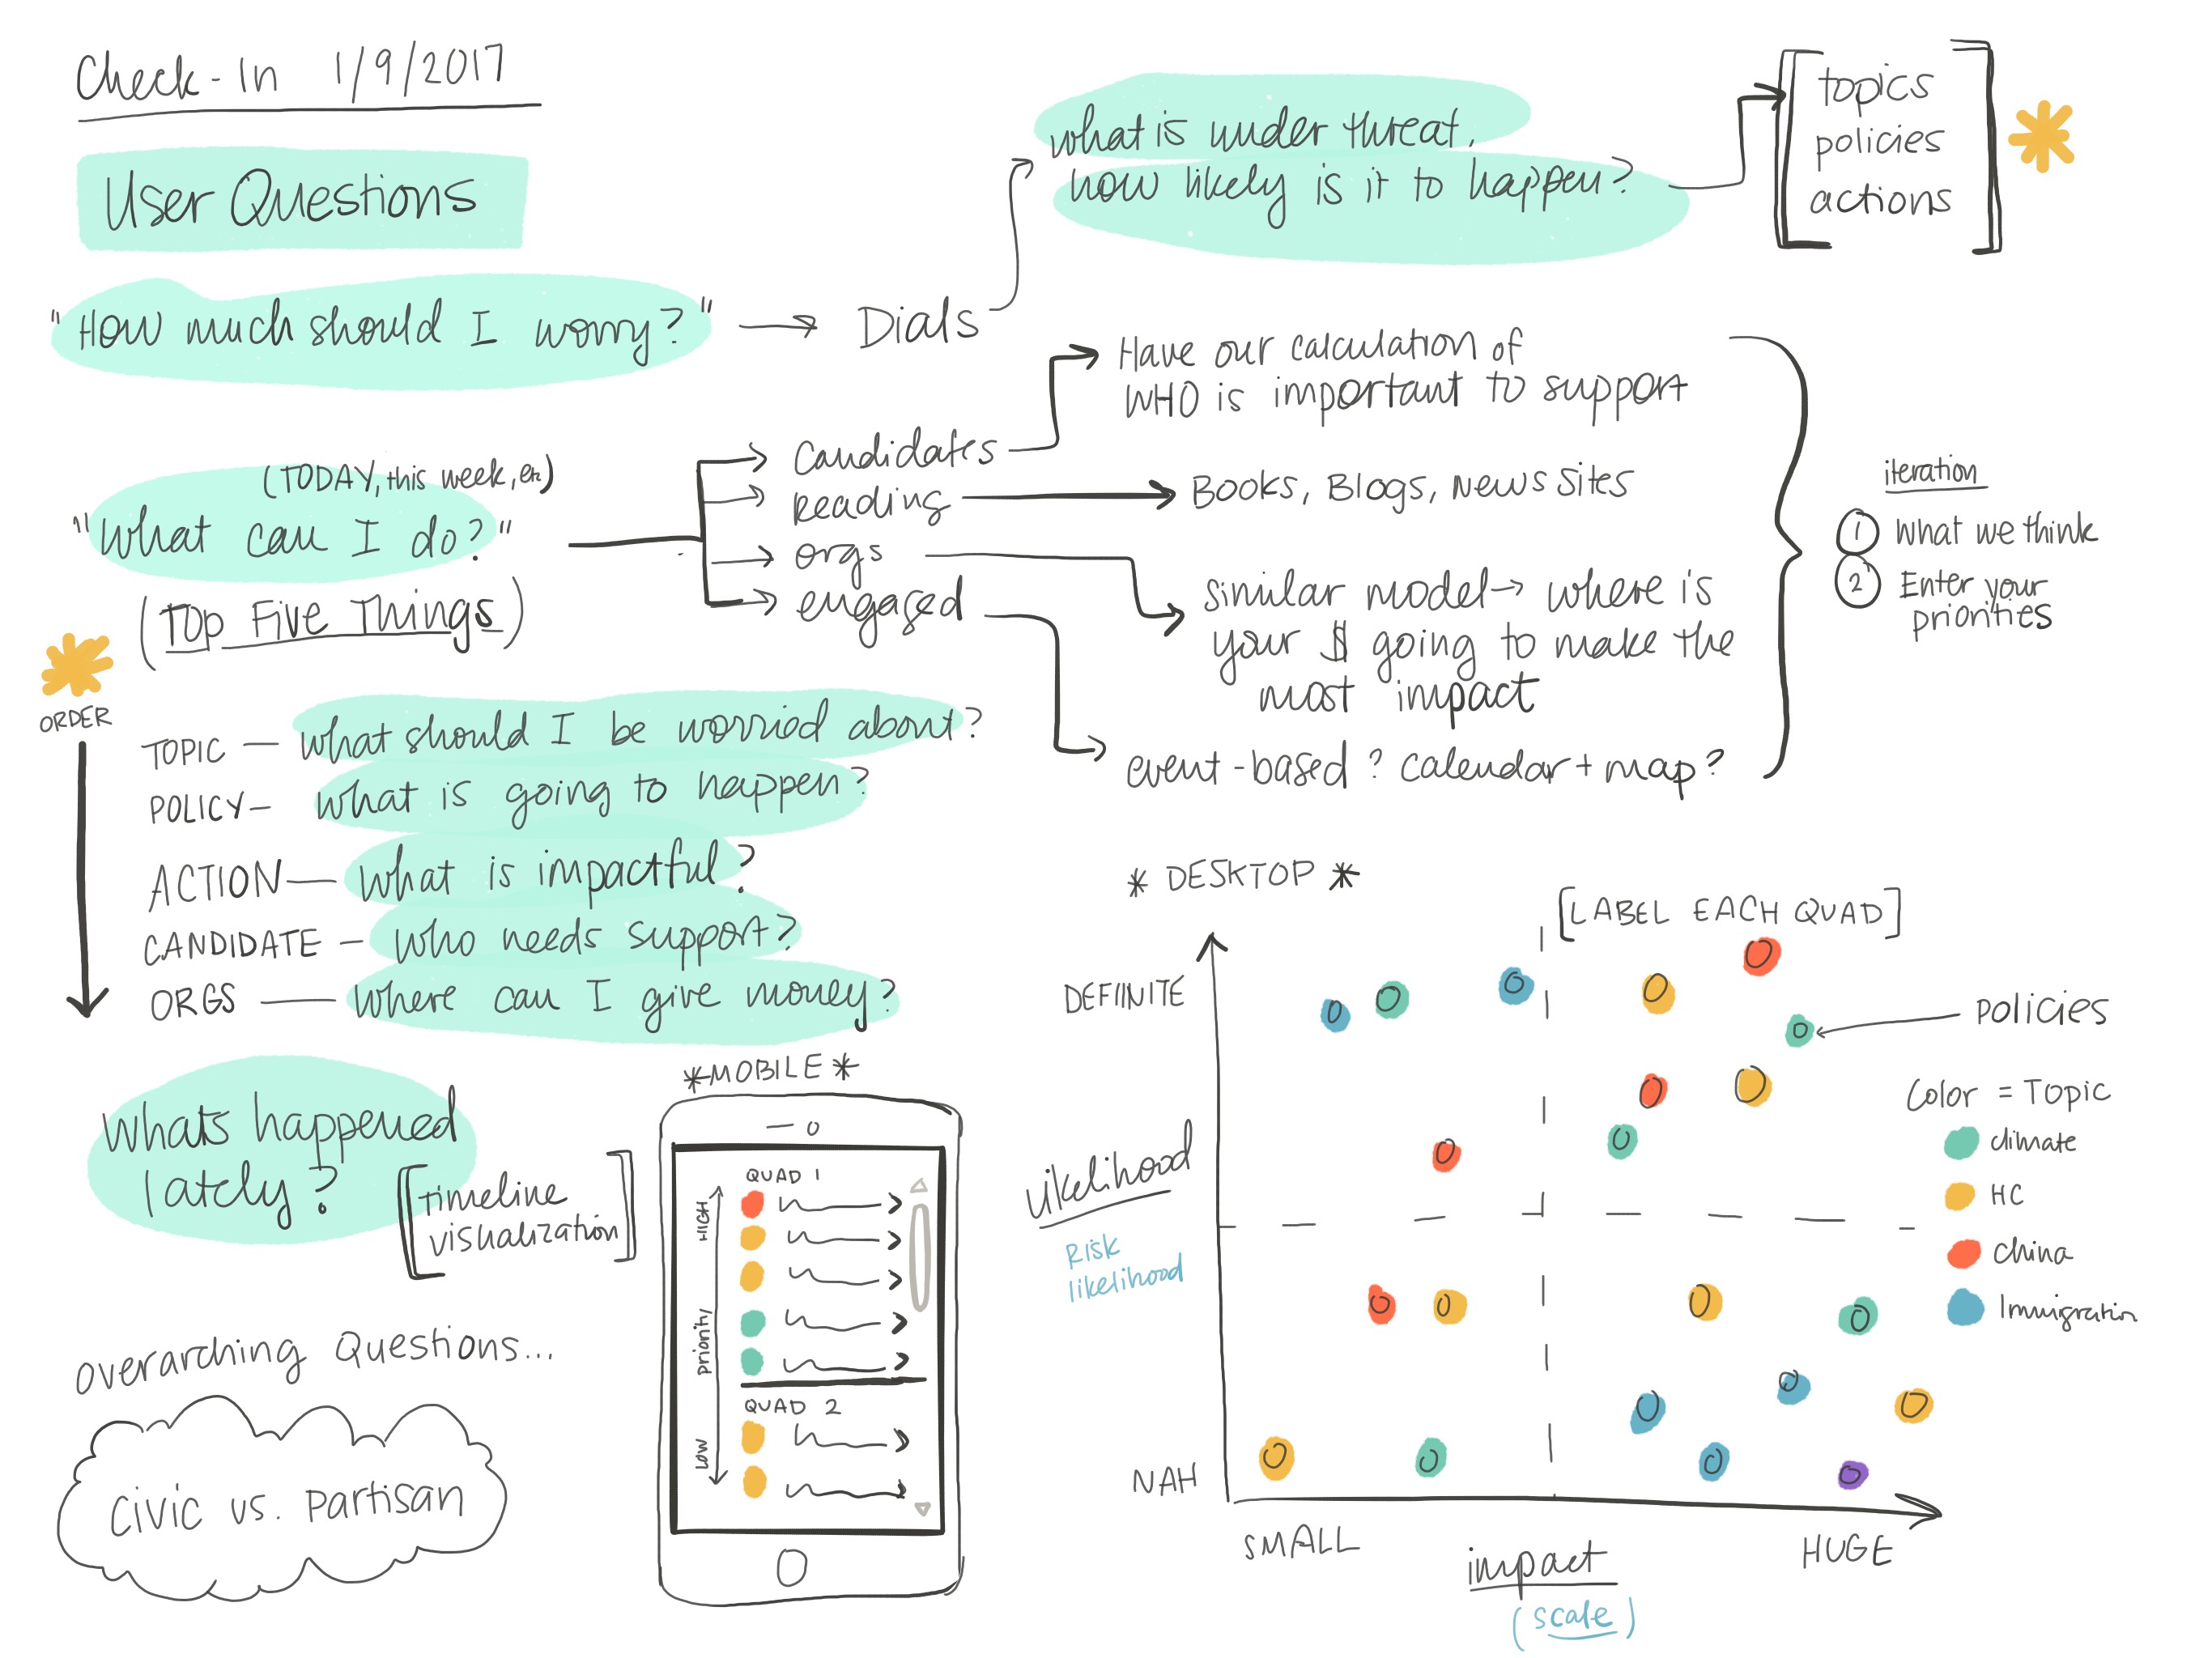 Check-In 1/9/2017
User Questions
"How much should I worry?"
Dials
what is under threat,
how likely is it to happen?
topics
policies
actions
(TODAY, this week, etc)
"What can I do?"
(Top Five Things)
Candidates
Reading
orgs
engaged
Have our calculation of
WHO is important to support
Books, Blogs, News Sites
similar model → where is
your $ going to make the
most impact
event-based? calendar + map?
iteration
1 What we think
2 Enter your
priorities
ORDER
TOPIC — what should I be worried about?
POLICY — what is going to happen?
ACTION — what is impactful?
CANDIDATE — who needs support?
ORGS — where can I give money?
whats happened
lately?
[Timeline
visualization]
overarching Questions...
civic vs. partisan
*MOBILE*
QUAD 1
HIGH
priority
LOW
QUAD 2
* DESKTOP *
[LABEL EACH QUAD]
DEFIINITE
Likelihood
Risk
likelihood
NAH
SMALL
HUGE
impact
(scale)
policies
Color = Topic
climate
HC
China
Immigration